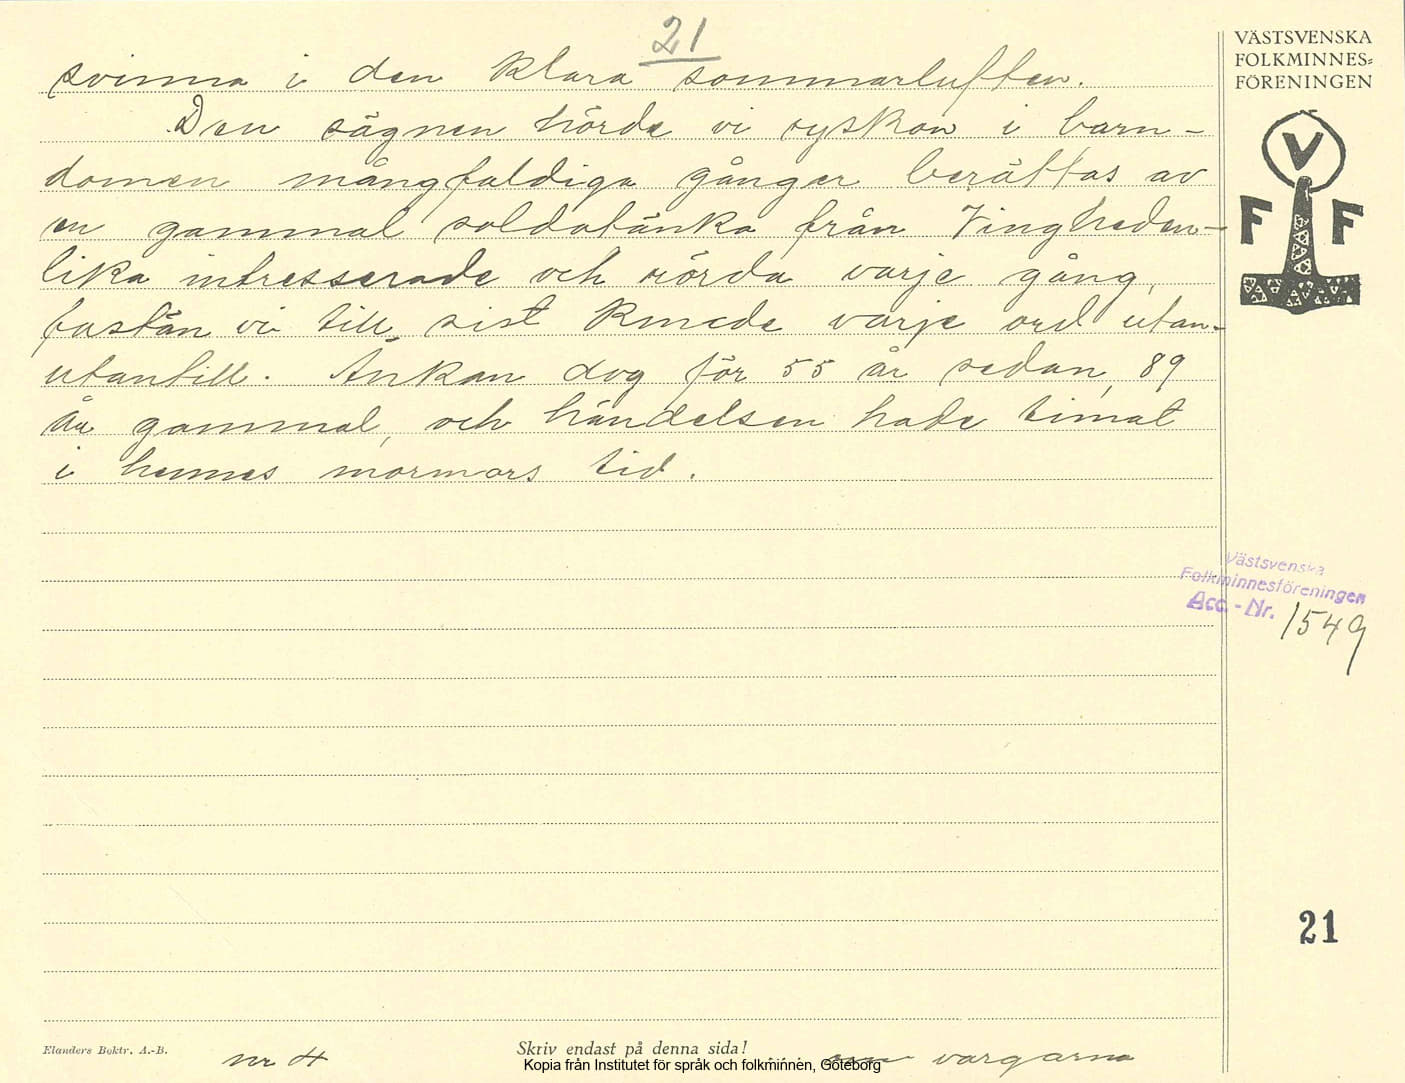 21
svinna i den klara sommarluften.
Den sägnen hörde vi syskon i barn-
domen mångfaldiga gånger berättas av
en gammal soldatänka från Vingheden -
lika intresserade och rörda varje gång,
fastän vi till sist kunde varje ord utan-
utantill. Änkan dog för 55 år sedan, 89
år gammal, och händelsen hade timat
i hennes mormors tid.
VÄSTSVENSKA
FOLKMINNES=
FÖRENINGEN
V
F F
Västsvenska
Folkminnesföreningen
Acc.-Nr. 1549
21
Elanders Boktr. A.-B.
nr 4
Skriv endast på denna sida!
om vargarna
Kopia från Institutet för språk och folkminnen, Göteborg